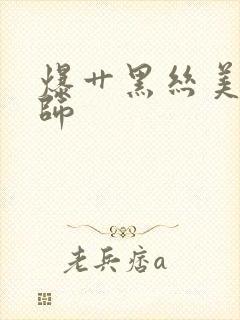 爆艹黑丝美
师
老兵痞a